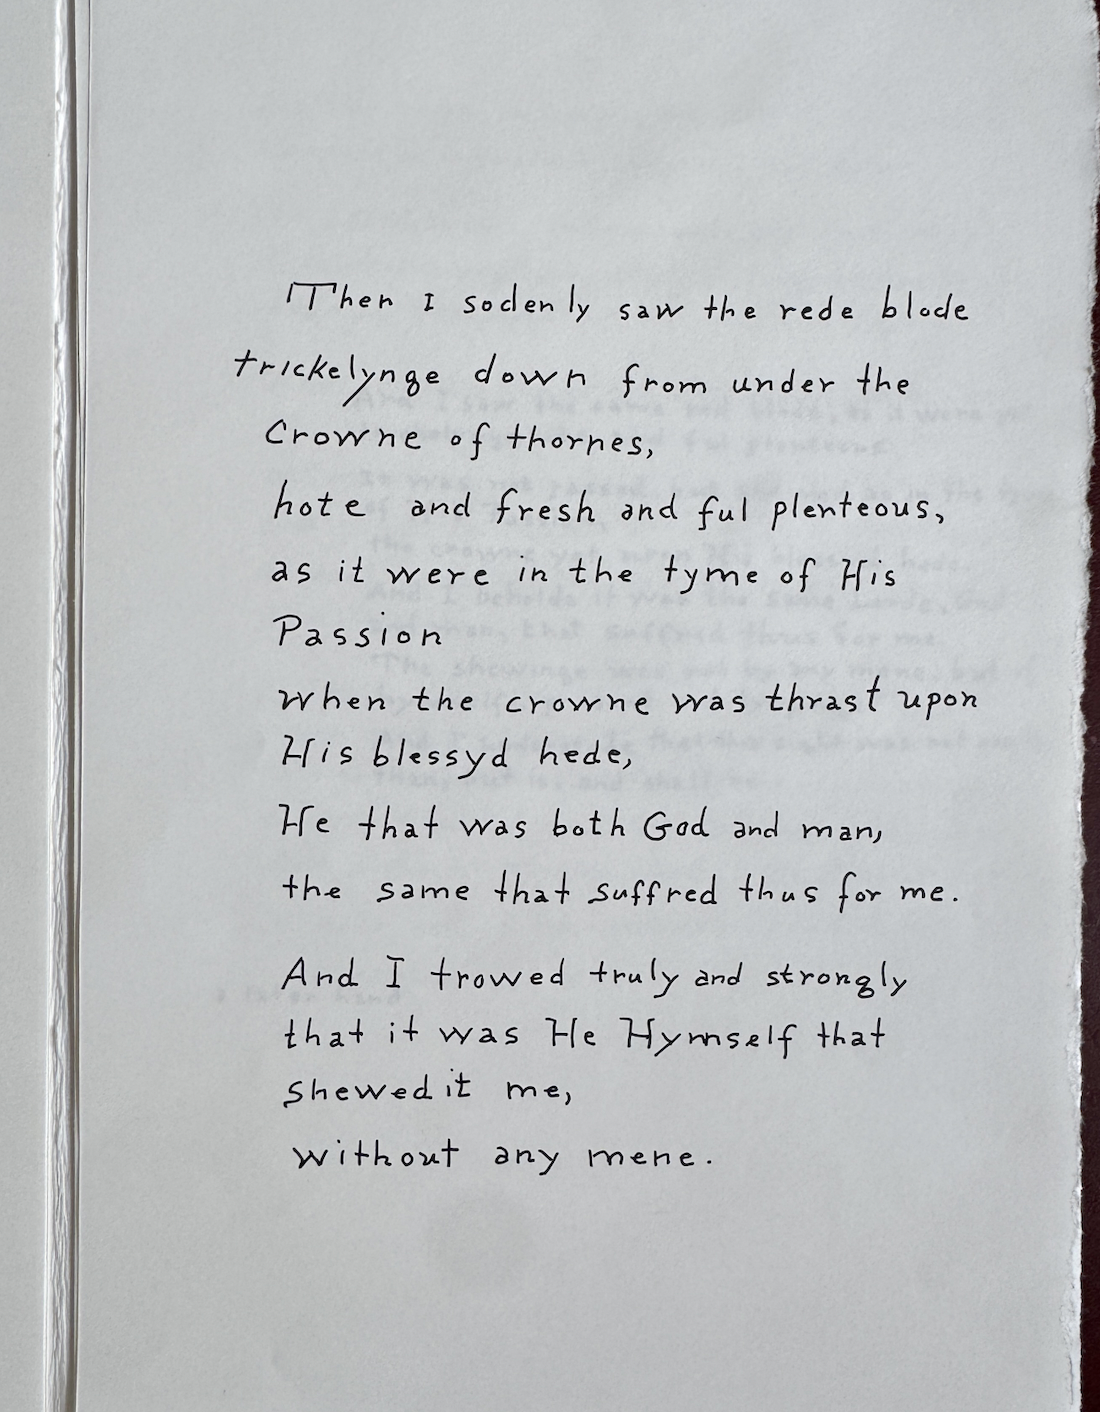 Then I sodenly saw the rede blode
trickelynge down from under the
Crowne of thornes,
hote and fresh and ful plenteous,
as it were in the tyme of His
Passion
when the crowne was thrast upon
His blessyd hede,
He that was both God and man,
the same that suffred thus for me.
And I trowed truly and strongly
that it was He Hymself that
shewed it me,
without any mene.